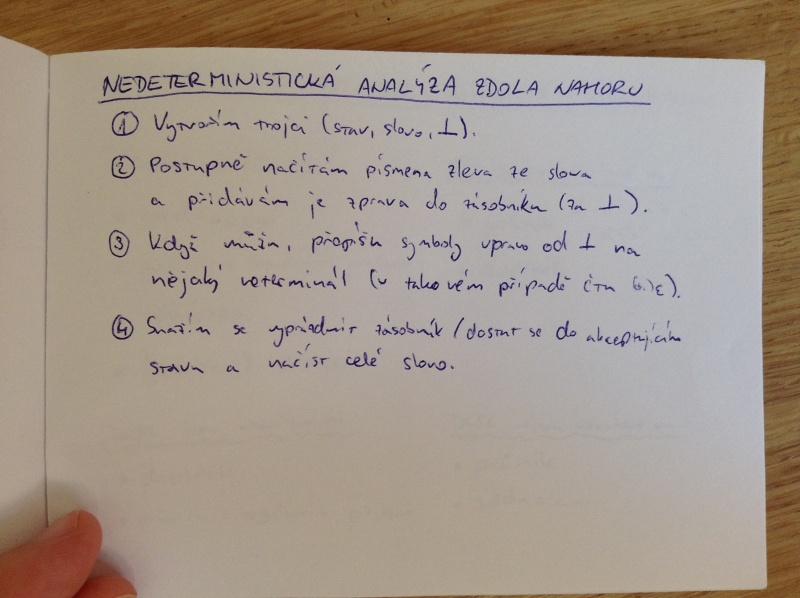 NEDETERMINISTICKÁ ANALÝZA ZDOLA NAHORU
① Vytvořím trojci (stav, slovo, ⊥).
② Postupně načítám písmena zleva ze slova
a přidávám je zprava do zásobníku (za ⊥).
③ Když můžu, přepíšu symboly vpravo od ⊥ na
nějaký neterminál (v takovém případě čtu ε).
④ Snažím se vyprázdnit zásobník / dostat se do akceptujícího
stavu a načíst celé slovo.